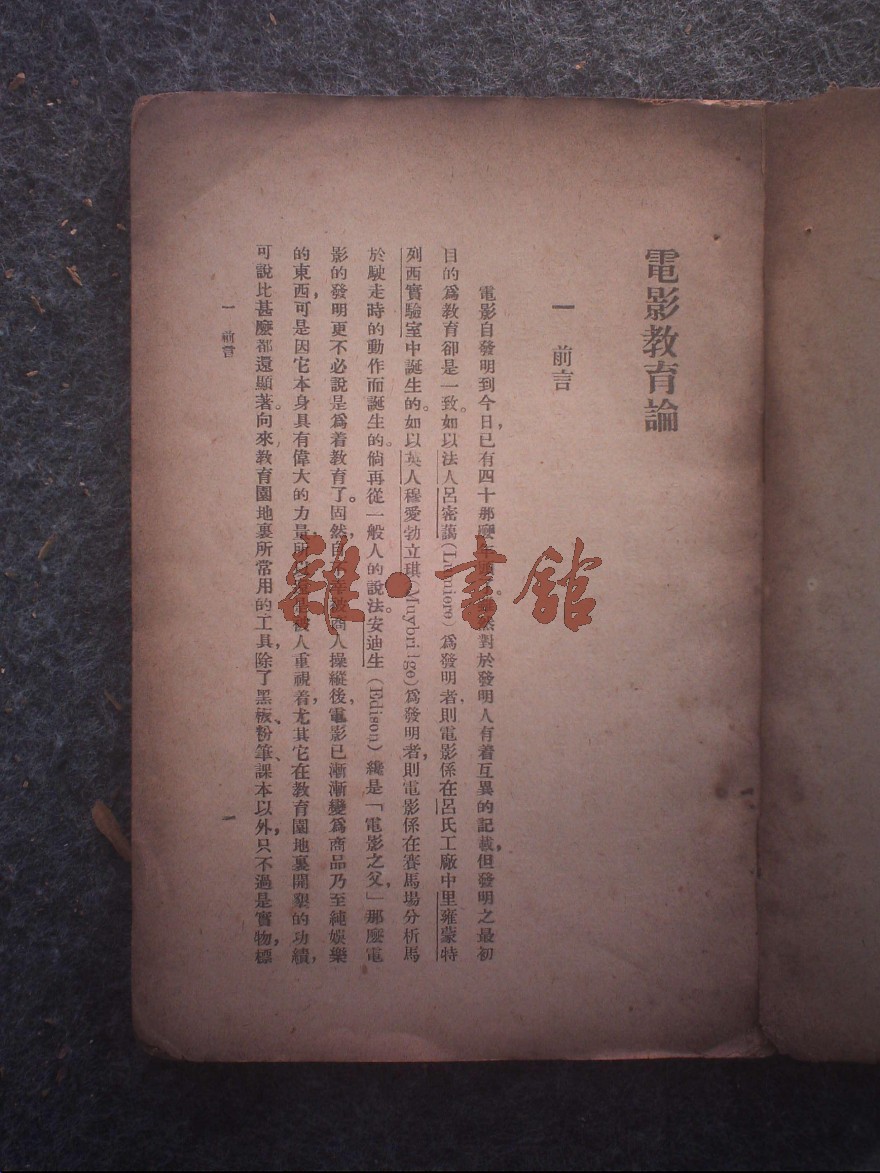 電影教育論
一 前言
電影自發明到今日，已有四十那麼年 然對於發明人有着互異的記載，但發明之最初
目的爲教育卻是一致。如以法人呂密藹（Lumiere）爲發明者，則電影係在呂氏工廠中里雍蒙特
列西實驗室中誕生的。如以英人穆愛勃立琪（Muybridge）爲發明者，則電影係在賽馬場分析馬
於駛走時的動作而誕生的。倘再從一般人的說法。安迪生（Edison）纔是「電影之父，」那麼電
影的發明更不必說是爲着教育了。固然，自 商人操縱後，電影已漸漸變爲商品乃至純娛樂
的東西，可是因它本身具有偉大的力量， 人重視着，尤其它在教育園地裏開墾的功績，
可說比甚麼都還顯著。向來教育園地裏所常用的工具，除了黑板、粉筆、課本以外，只不過是實物，標
一 前言
一
雜·書館